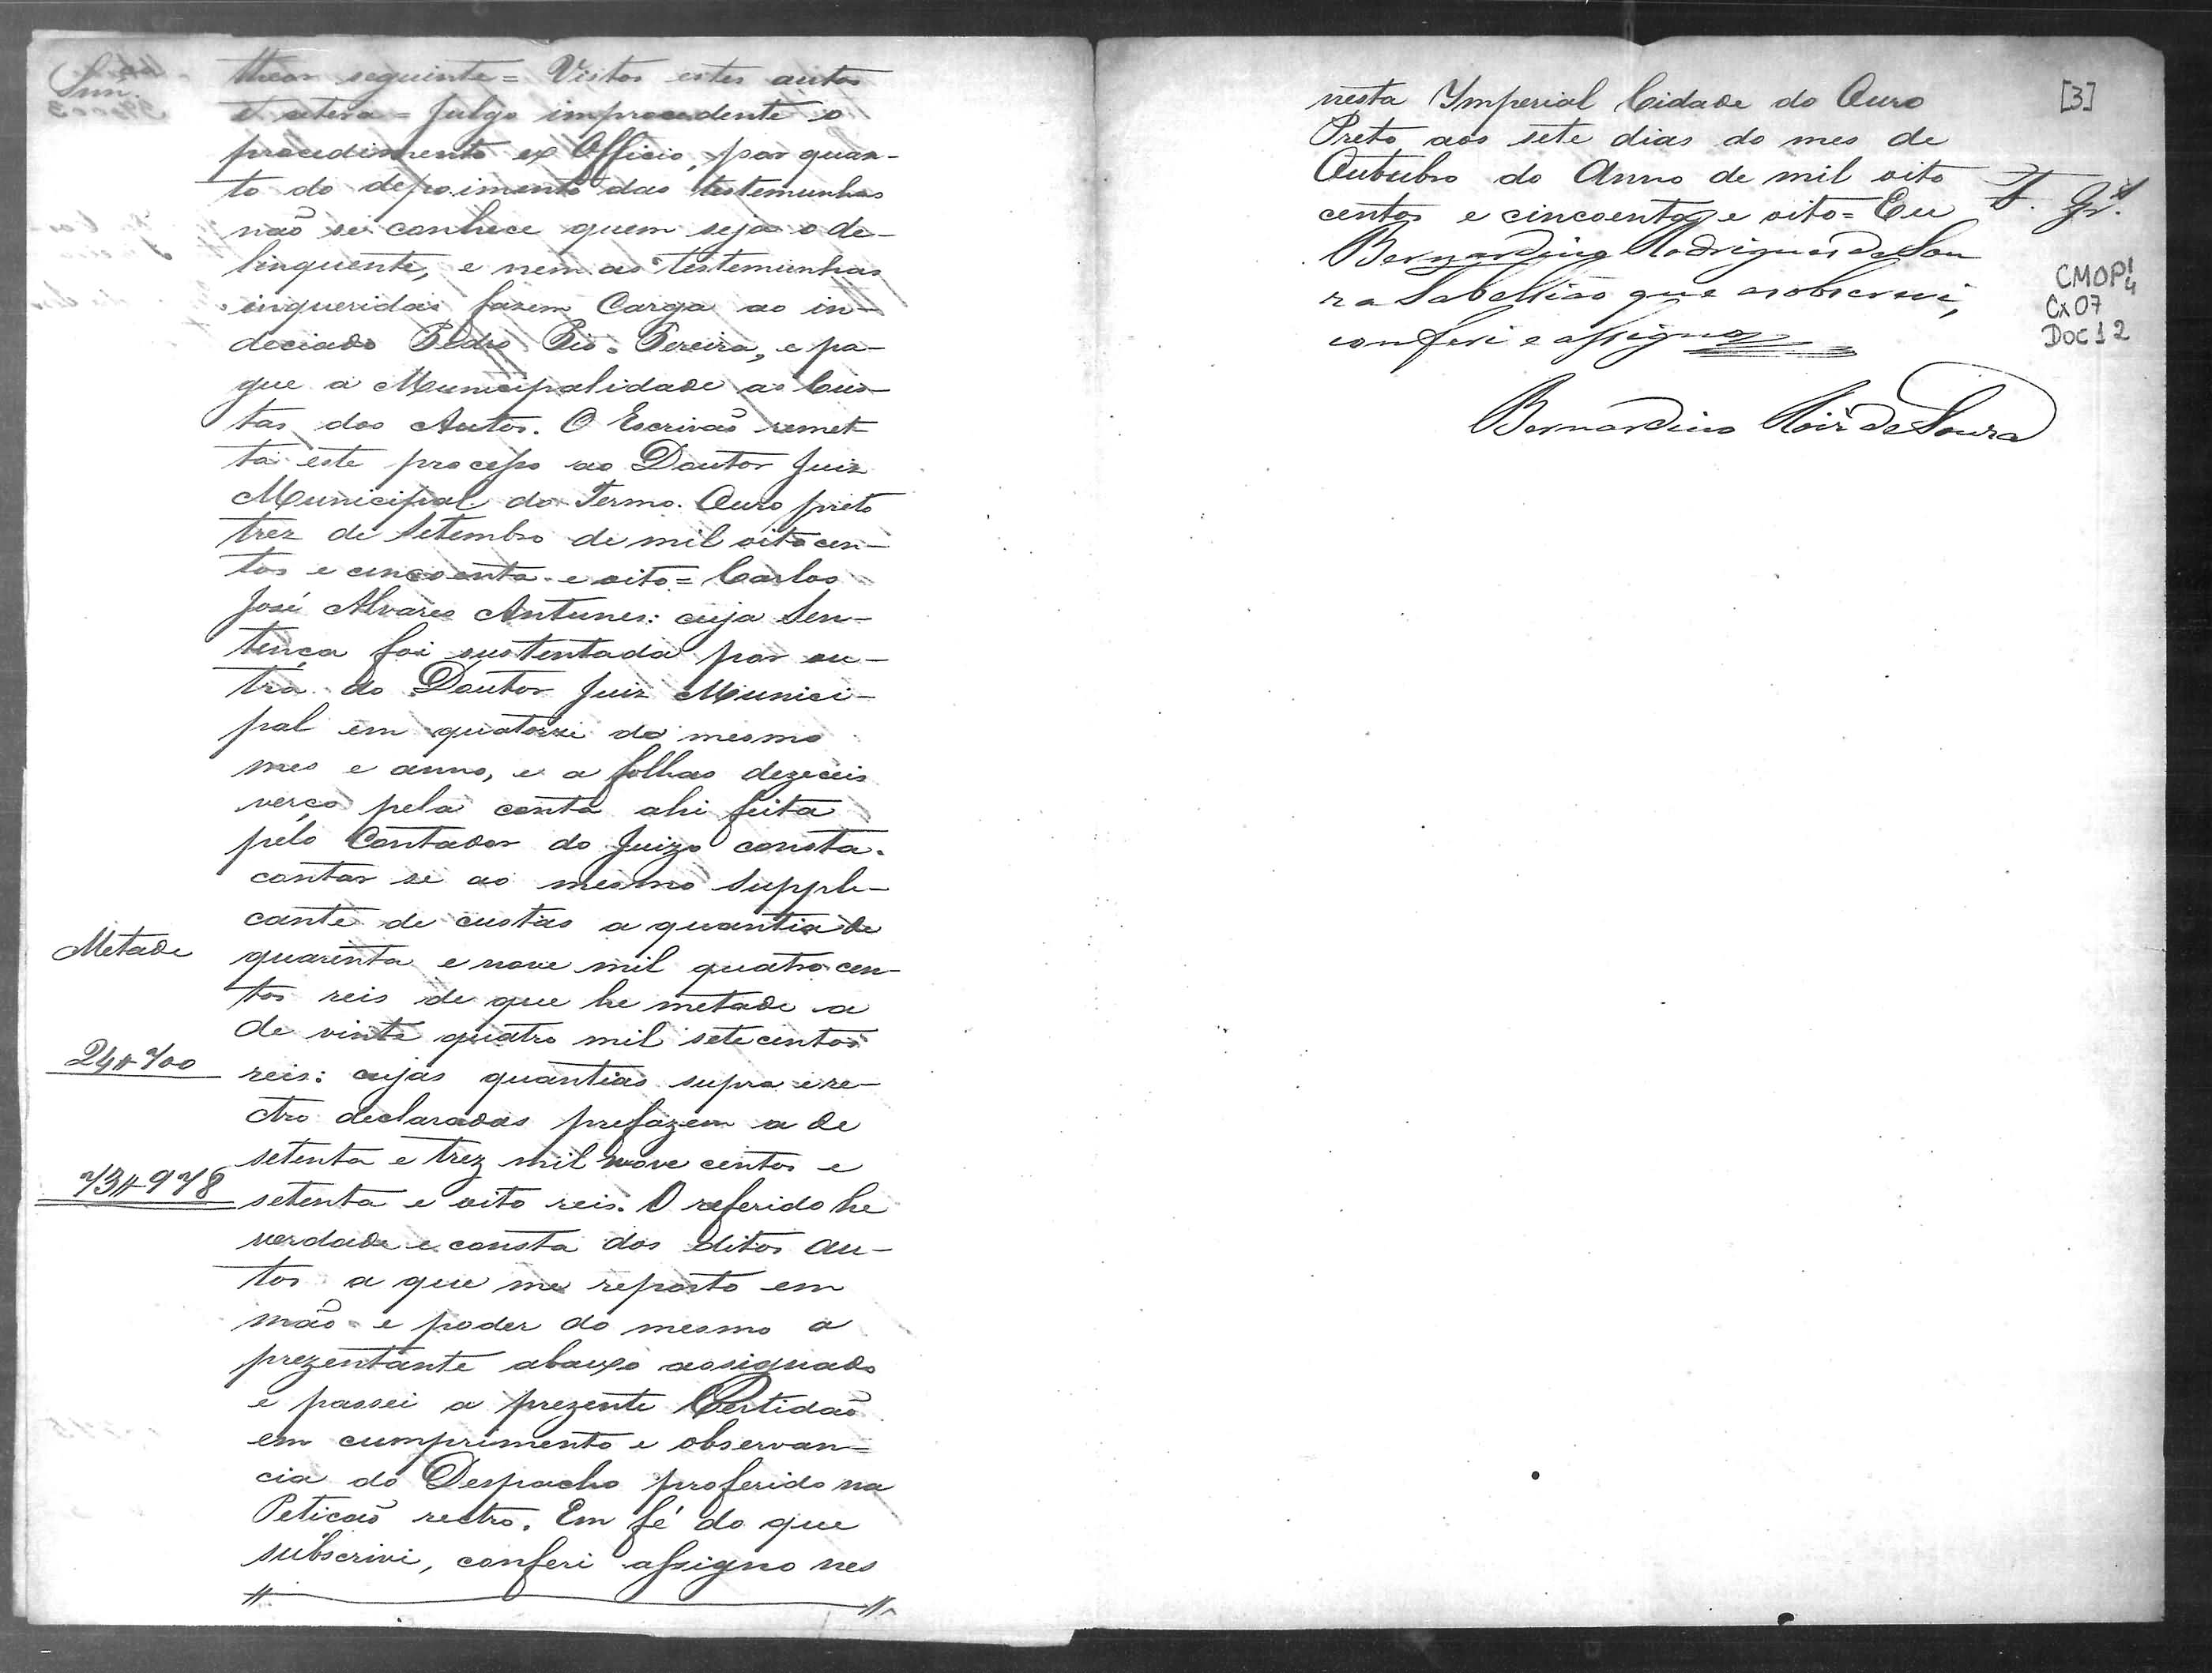 Sum.
theor seguinte = Vistos estes autos
et cetera = Julgo improcedente o
procedimento ex Officio, por quan-
to do depoimento das testemunhas
não se conhece quem seja o de-
linquente, e nem as testemunhas
inqueridas fazem Carga ao in-
deciado Pedro Pio Pereira, e pa-
gue a Municipalidade as Cus-
tas dos Autos. O Escrivaõ remet-
ta este processo ao Doutor Juiz
Municipal do Termo. Ouro preto
trez de Setembro de mil oito cen-
tos e cincoenta e oito = Carlos
José Alvares Antunes: cuja Sen-
tença foi sustentada por ou-
tra do Doutor Juiz Munici-
pal em quatorze do mesmo
mes e anno, e a folhas dezeceis
verço pela conta ahi feita
pelo Contador do Juizo consta
contar se ao mesmo Suppli-
cante de custas a quantia de
Metade
quarenta e nove mil quatro cen-
tos reis de que he metade a
de vinte quatro mil sete centos
24#700
reis: cujas quantias supra e re-
ctro declaradas prefazem a de
setenta e trez mil nove centos e
73#978
setenta e oito reis. O referido he
verdade e consta dos ditos au-
tos a que me reporto em
maõ e poder do mesmo a
prezentante abaixo assignado
e passei a prezente Certidaõ
em cumprimento e observan-
cia do Despacho proferido na
Peticaõ rectro. Em fé do que
subscrivi, conferi assigno nes
nesta Ymperial Cidade do Ouro
Preto aos sete dias do mes de
Outubro do Anno de mil oito
centos e cincoenta e oito = Eu
Bernardino Rodrigues de Sou
za Tabelliaõ que asobscrevi,
conferi e assigno
Bernardino Roiz de Souza
[3]
CMOP
Cx 07
Doc 12